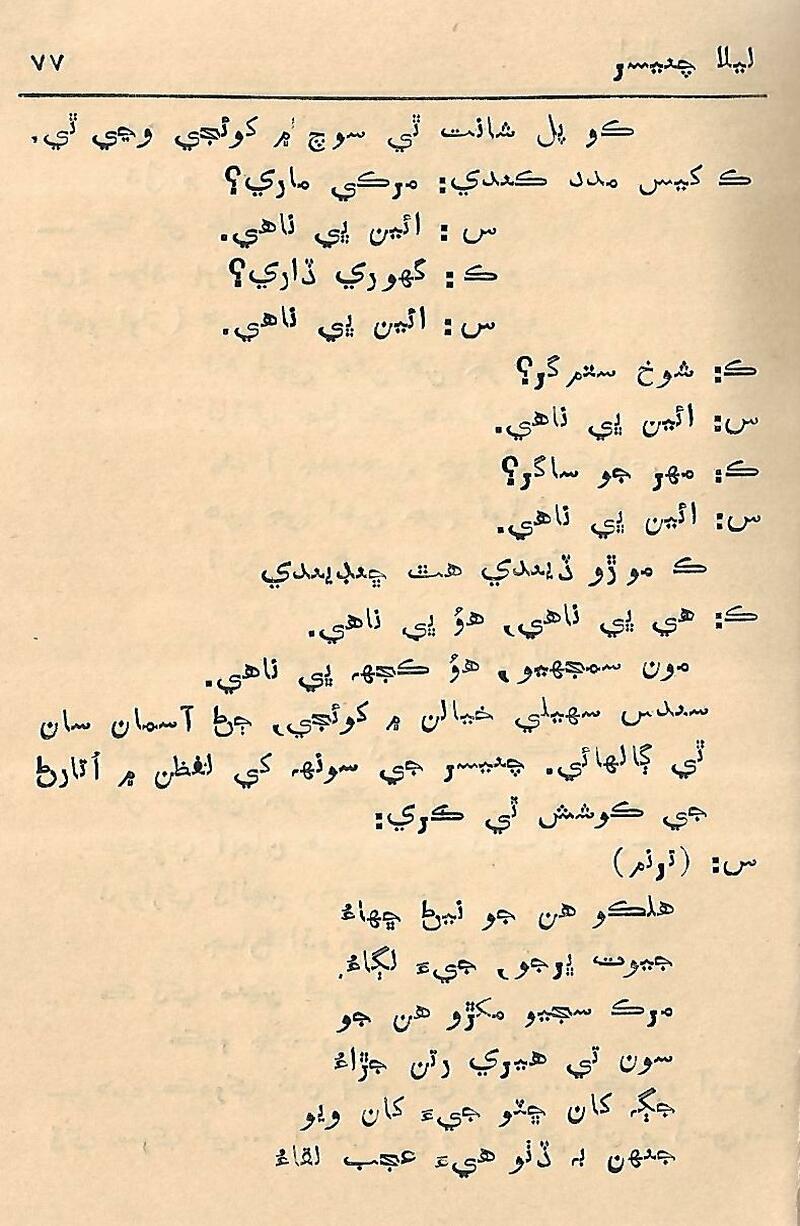 ليلا چنيسر ۷۷
ڪو پل شانت ٿي سوچ ۾ کوئجي وڃي ٿي.
ڪ کيس مدد ڪندي: مرڪي ماري؟
س : ائين ڀي ناهي.
ڪ : گهوري ڏاري؟
س : ائين ڀي ناهي.
ڪ: شوخ ستمگر؟
س: ائين ڀي ناهي.
ڪ: مهر جو ساگر؟
س: ائين ڀي ناهي.
ڪ موڙو ڏيندي هٿ ڇنڊيندي
ڪ: هي ڀي ناهي، هوُ ڀي ناهي.
مون سمجهيو، هوُ ڪجهہ ڀي ناهي.
سندس سهيلي خيالن ۾ کوئجي، ڄڻ آسمان سان
ٿي ڳالهائي. چنيسر جي سونهہ کي لفظن ۾ اُتارڻ
جي ڪوشش ٿي ڪري:
س: (ترنم)
هلڪو هن جو نيڻ ڇهاءُ
جيوت ڀرجو، جيءَ لڳاءُ.
مرڪ سجيو مکڙو هن جو
سون تي هيري رتن جڙاءُ
جڳہ کان ڇٽو جيءَ کان ويو
جنهن بہ ڏٺو هيءَ عجب لقاءُ